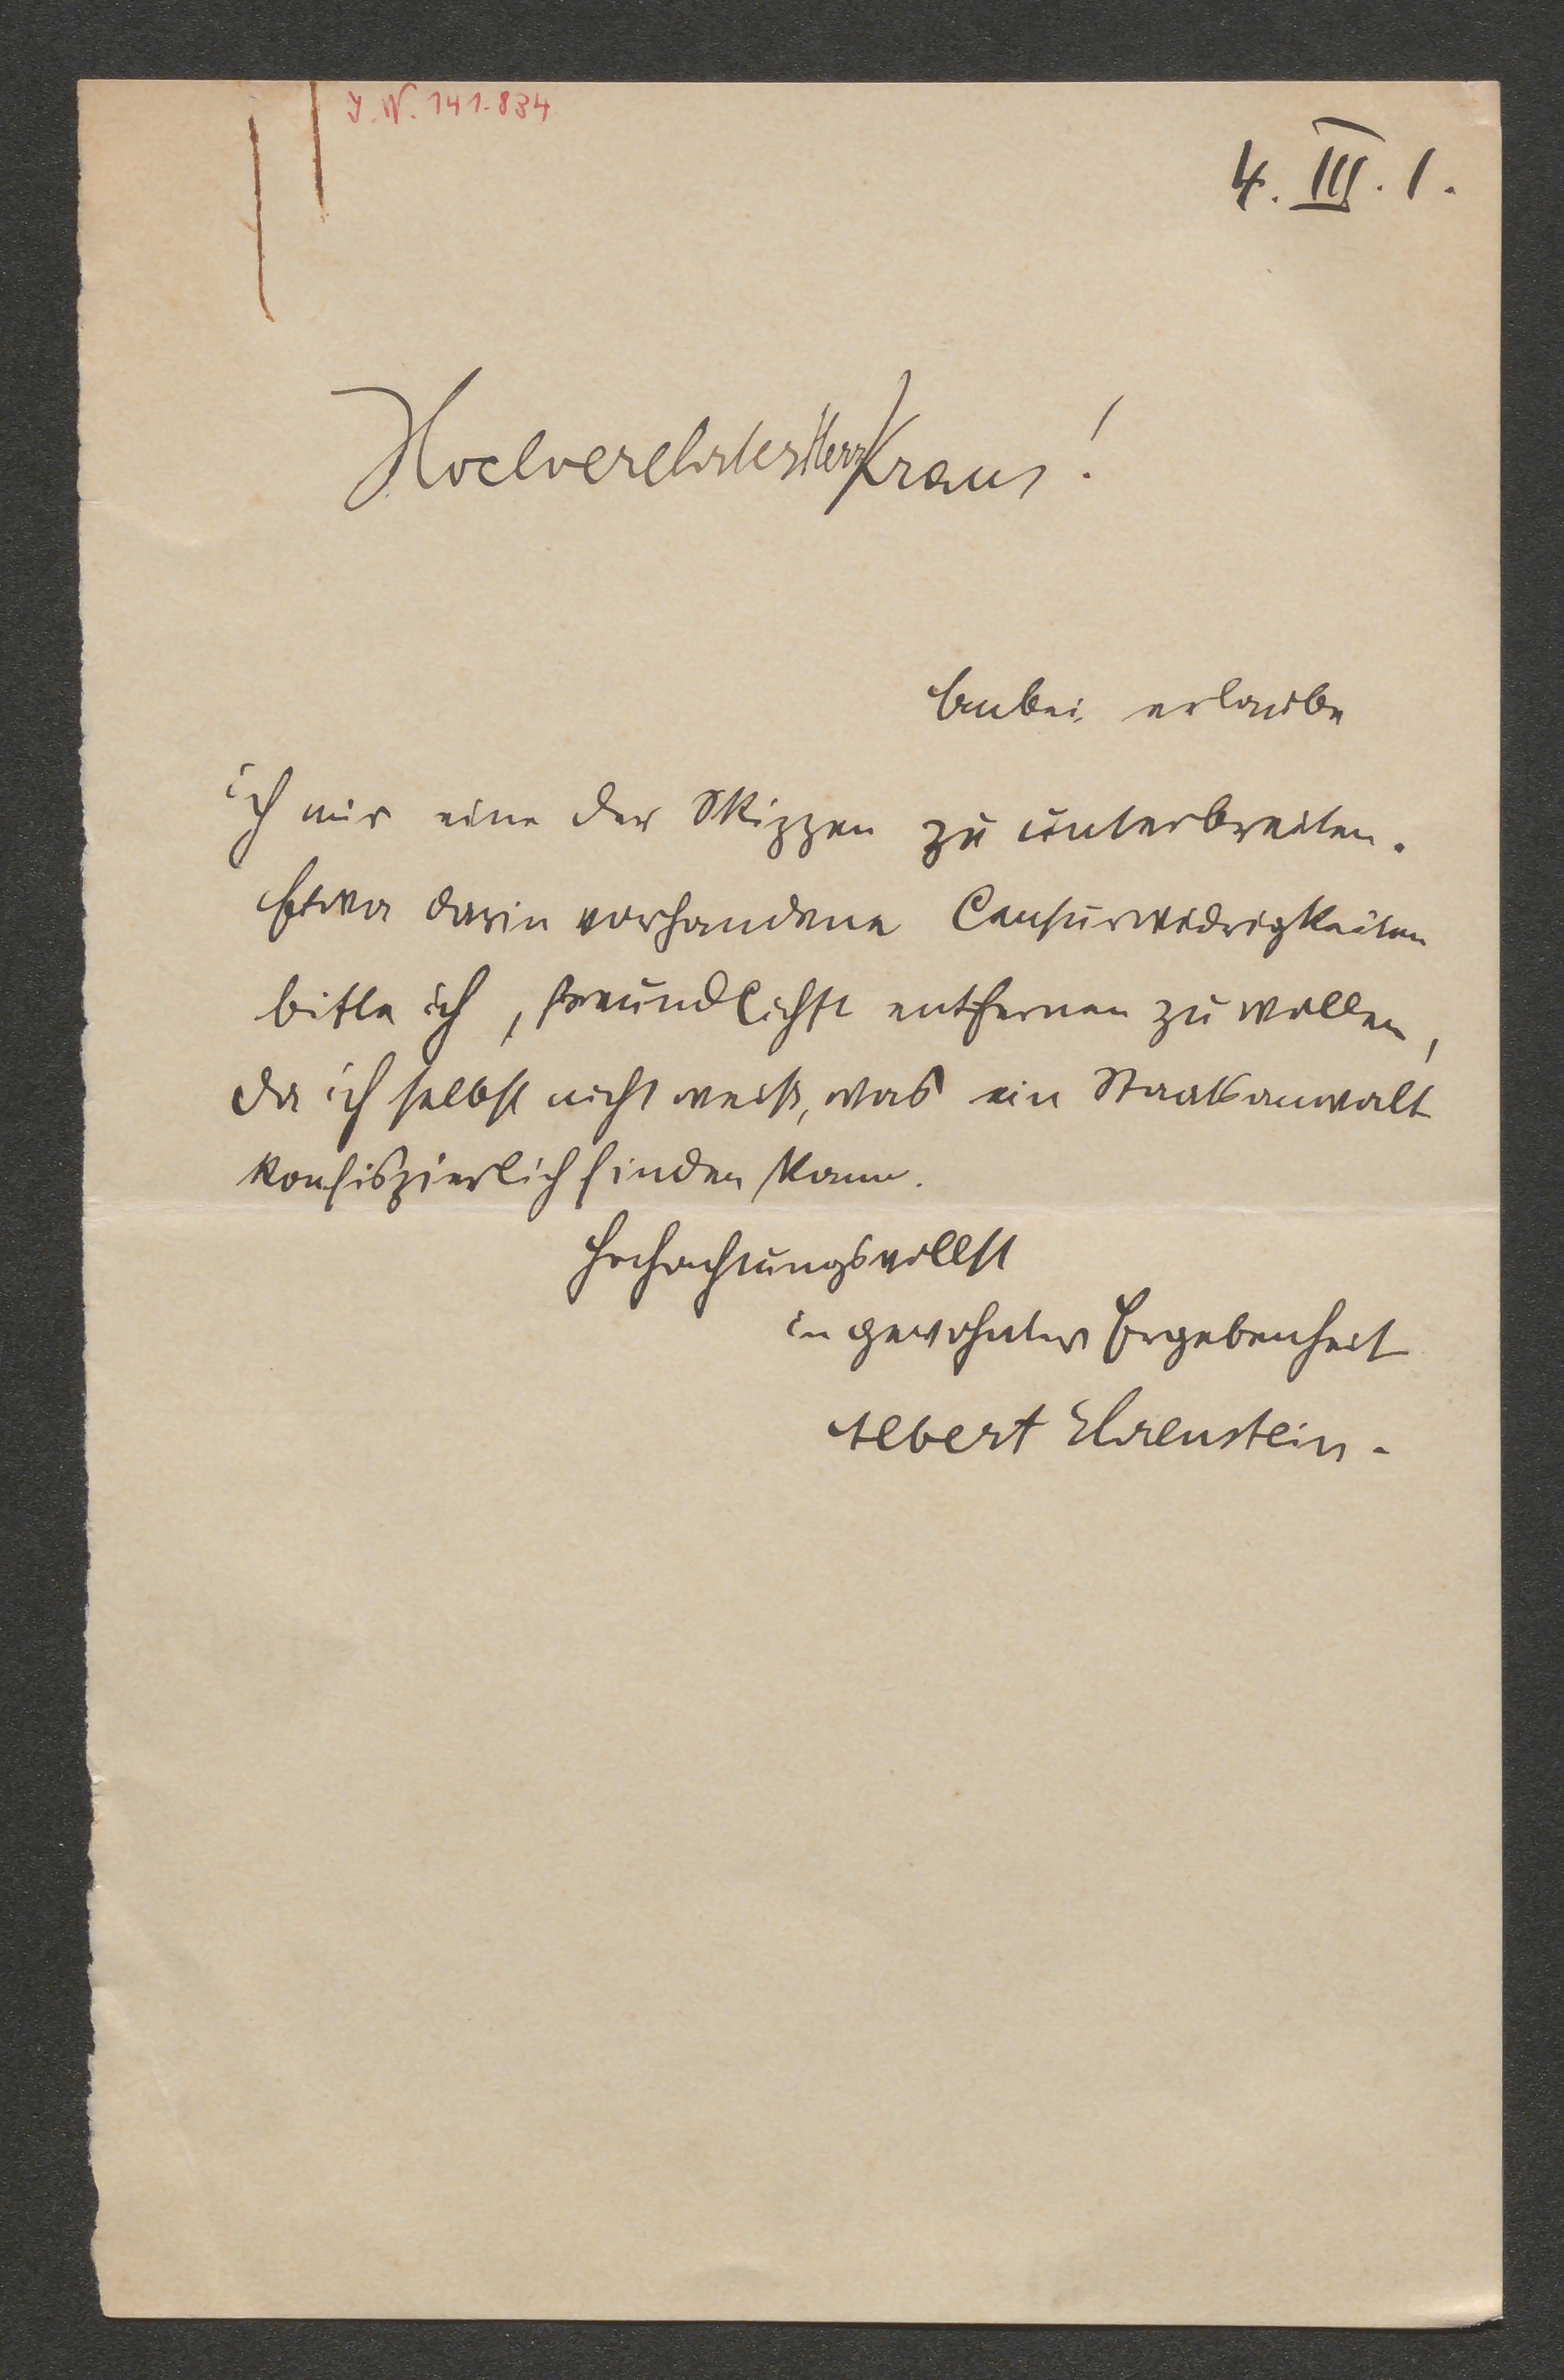 J.N. 141.834
4. III. 1.
Hochverehrter Herr Kraus!
Anbei erlaube
ich mir eine der Skizzen zu unterbreiten.
Etwa darin vorhandene Censurwidrigkeiten
bitte ich, freundlichst entfernen zu wollen,
da ich selbst nicht weiß, was ein Staatsanwalt
konfiszierlich finden kann.
Hochachtungsvollst
in gewohnter Ergebenheit
Albert Ehrenstein.